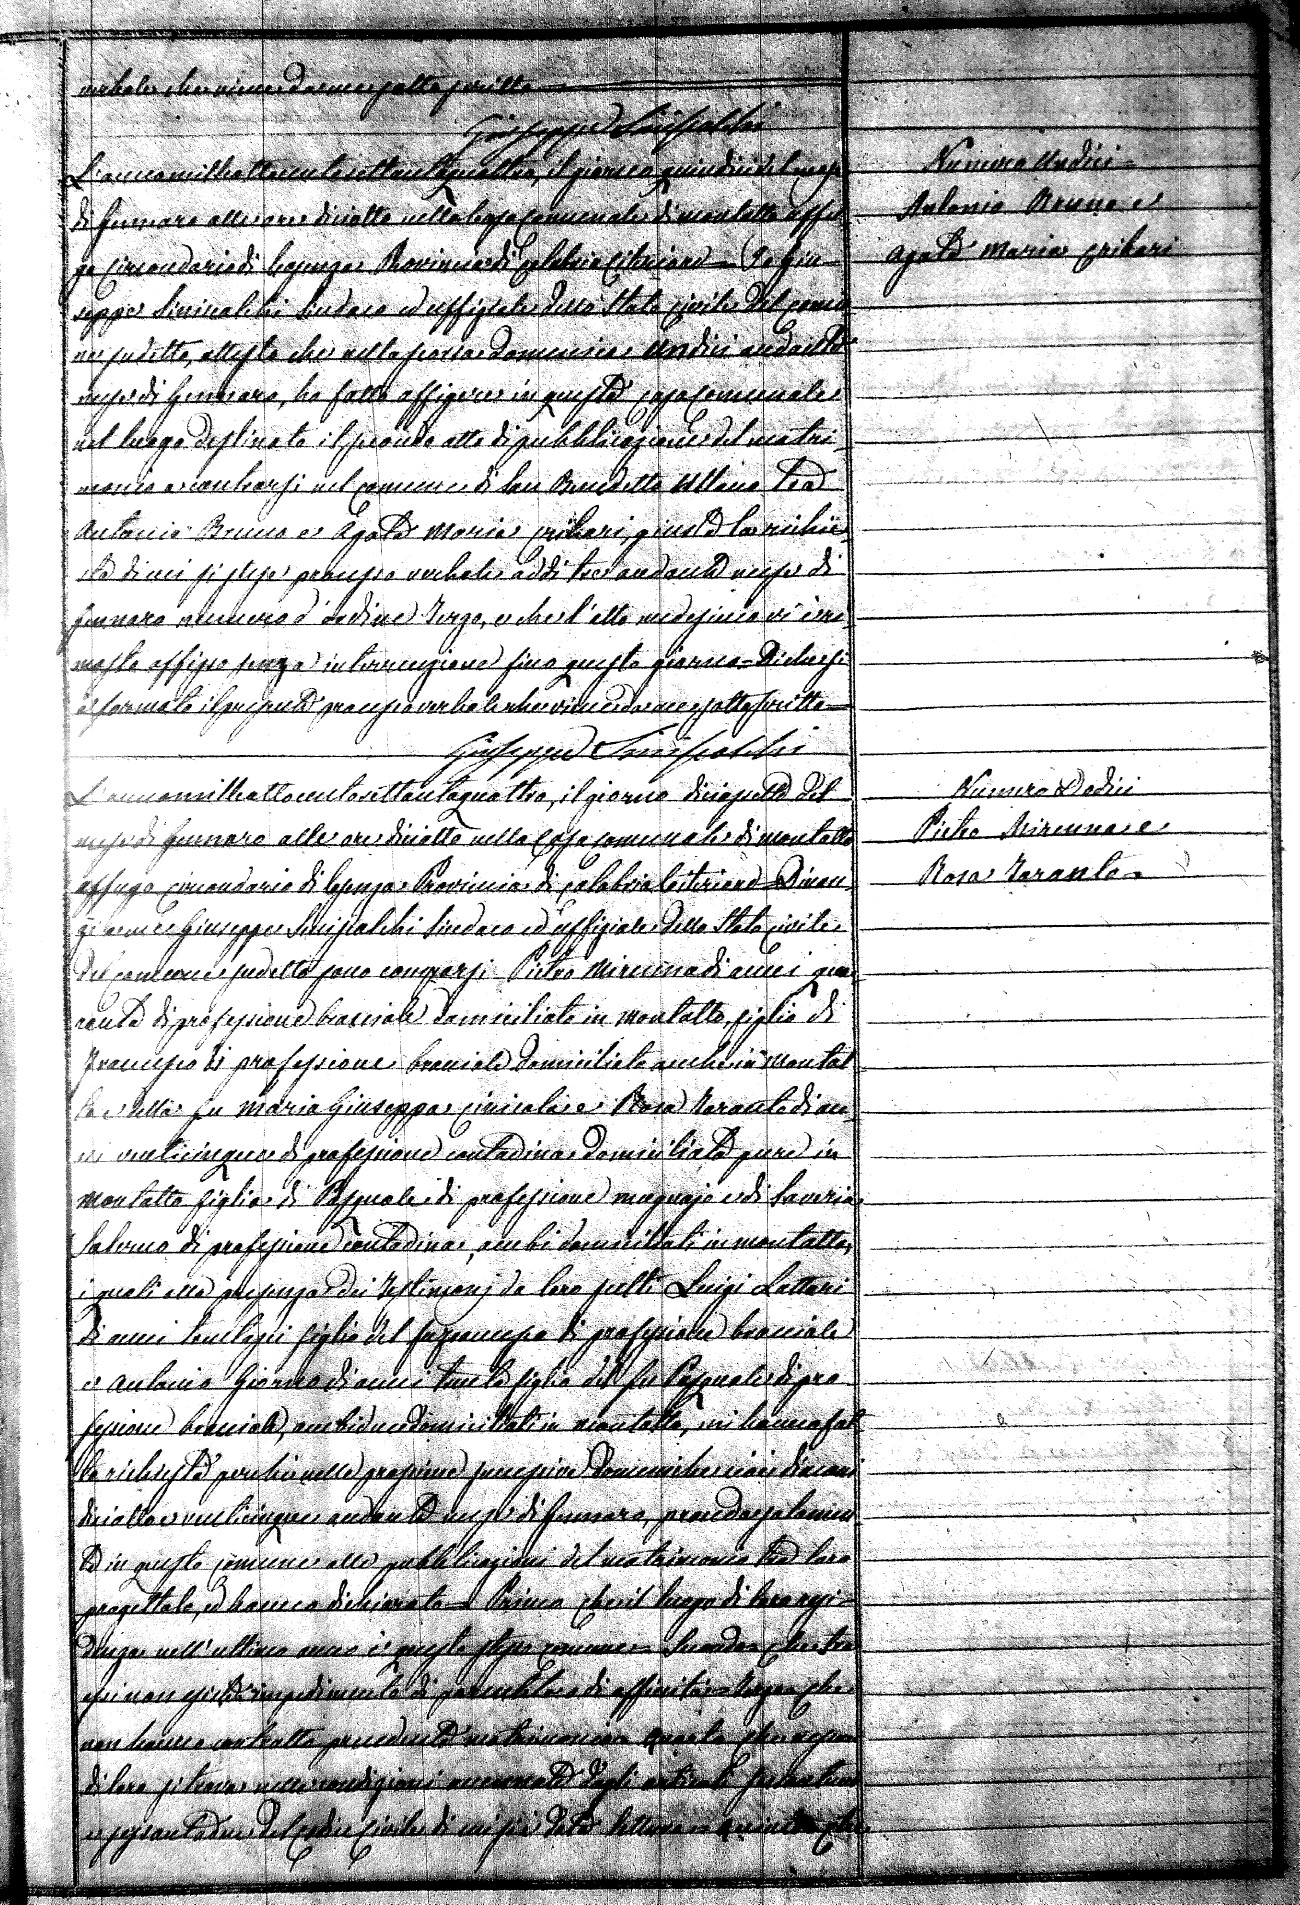 verbale che viene da me sottoscritto
Giuseppe Siniscalchi
L'anno milleottocentosettantaquattro, il giorno quindici del mese
di Gennaro alle ore diciotto nella casa comunale di Montalto Uffu
go Circondario di Cosenza Provincia di Calabria Citeriore = Io Giu
seppe Siniscalchi Sindaco ed uffiziale dello Stato Civile del comu
ne sudetto, attesto che nella scorsa domenica Undici andante
mese di Gennaro, ho fatto affigere in questa casa comunale
nel luogo destinato il secondo atto di pubblicazione del matri
monio a contrarsi nel comune di San Benedetto Ullano tra
Antonio Bruno e Agata Maria Cribari, giusta la richie
sta di cui si stese processo verbale addì tre andante mese di
Gennaro numero d'ordine Terzo, e che l'atto medesimo vi è ri
masto affisso senza interruzione fino questo giorno = Di che si
è formato il presente processo verbale che viene da me sottoscritto
Giuseppe Siniscalchi
L'anno milleottocentosettantaquattro, il giorno diciasette del
mese di Gennaro alle ore diciotto nella Casa comunale di Montalto
Uffugo Circondario di Cosenza Provincia di Calabria Citeriore = Dinan
zi a me Giuseppe Siniscalchi Sindaco ed uffiziale dello Stato Civile
del comune sudetto sono comparsi Pietro di anni qua
ranta di professione bracciale domiciliato in Montalto, figlio di
Francesco di professione bracciale domiciliato anche in Montal
to e della fu Maria Giuseppa e Rosa Taranto di an
ni venticinque di professione contadina domiciliata pure in
Montalto figlia di Pasquale di professione mugnajo e di Saveria
Salerno di professione contadina, ambi domiciliati in Montalto,
i quali alla presenza dei Testimonj da loro scelti Luigi Lattari
di anni figlio del fu Francesco di professione bracciale
e Antonio Giorno di anni trenta figlio del fu Pasquale di pro
fessione bracciale, ambidue domiciliati in Montalto, mi hanno fat
to richiesta perchè nelle prossime successive Domeniche cioè di
diciotto e venticinque andante mese di Gennaro, proceda solamen
te in questo comune alle pubblicazioni del matrimonio tra loro
progettato, ed hanno dichiarato = Primo che il luogo di loro resi
denza nell'ultimo anno è questo stesso comune = Secondo che tra
essi non esiste impedimento di parentela o di affinità = Terzo che
non hanno contratto precedente matrimonio = Quarto che nessuno
di loro si trova nelle condizioni enunciate dagli articoli
e sessantadue del codice Civile di cui si è data lettura = Quinto che
Numero Undici =
Antonio Bruno e
Agata Maria Cribari
Numero Dodici
Pietro
Rosa Taranto =